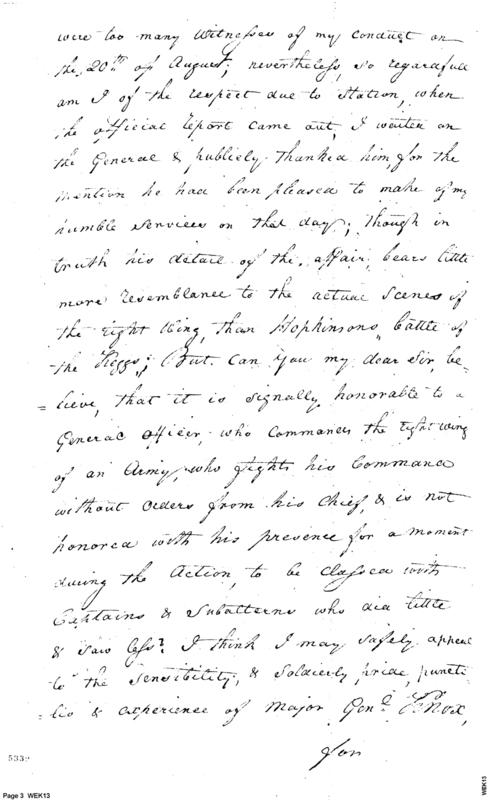 were too many Witnesses of my conduct on
the 20th of August; nevertheless, so regardfull
am I of the respect due to Station, when
the official report came out, I waited on
the General & publicly thanked him, for the
mention he had been pleased to make of my
humble services on that day; though in
truth his detail of the affair, bears little
more resemblance to the actual scenes of
the right Wing, than Hopkinsons, battle of
the Keggs; But can you my dear Sir, be-
=lieve, that it is signally honorable to a
General officer, who commands the right wing
of an Army, who fights his Command
without orders from his chief, & is not
honored with his presence for a moment
during the Action, to be classed with
Captains & Subalterns who did little
& saw less? I think I may safely appeal
to the sensibility, & Soldierly pride, puncti
=lio & experience of Major Genl. Knox,
for
533
Page 3 WEK13
WEK13